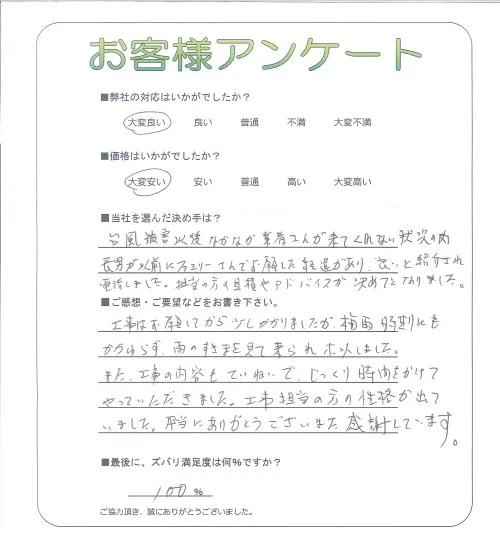 お客様アンケート
■弊社の対応はいかがでしたか?
大変良い 良い 普通 不満 大変不満
■価格はいかがでしたか?
大変安い 安い 普通 高い 大変高い
■当社を選んだ決め手は?
台風被害以後なかなか業者さんが来てくれない状況の内
長男が以前にファミリーさんでお願した経過があり、良いと紹介され
電話しました。担当の方の見積やアドバイスが決めてとなりました。
■ご感想・ご要望などをお書き下さい。
工事はお願してから少しかかりましたが、梅雨時期にも
かかわらず、雨のすきまを見て来られホッとしました。
また、工事の内容もていねいで、じっくり時間をかけて
やっていただきました。工事担当の方の性格が出て
いました。本当にありがとうございまた感謝しています。
■最後に、ズバリ満足度は何%ですか?
100 %
ご協力頂き、誠にありがとうございました。